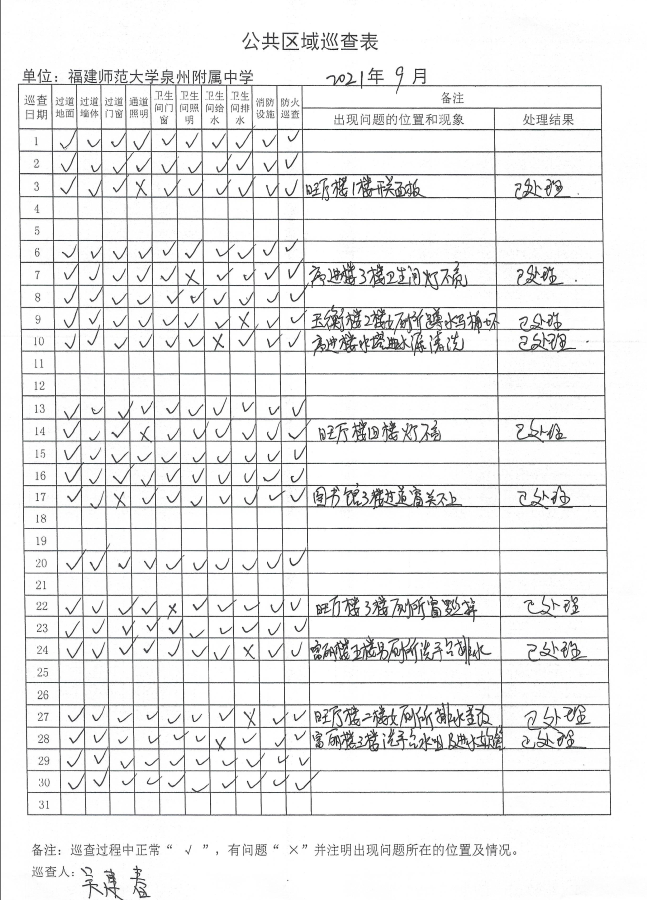 公共区域巡查表
单位：福建师范大学泉州附属中学 2021年 9月
巡查日期 过道地面 过道墙体 过道门窗 通道照明 卫生间门窗 卫生间照明 卫生间给水 卫生间排水 消防设施 防火巡查 备注
出现问题的位置和现象 处理结果
1 ✓ ✓ ✓ ✓ ✓ ✓ ✓ ✓ ✓ ✓
2 ✓ ✓ ✓ ✓ ✓ ✓ ✓ ✓ ✓ ✓
3 ✓ ✓ ✓ × ✓ ✓ ✓ ✓ ✓ ✓ 旺厅楼1楼开关面板 已处理
4
5
6 ✓ ✓ ✓ ✓ ✓ ✓ ✓ ✓ ✓ ✓
7 ✓ ✓ ✓ ✓ ✓ × ✓ ✓ ✓ ✓ 高进楼3楼卫生间灯不亮 已处理
8 ✓ ✓ ✓ ✓ ✓ ✓ ✓ ✓ ✓ ✓
9 ✓ ✓ ✓ ✓ ✓ ✓ ✓ × ✓ ✓ 玉衡楼2楼女厕所 已处理
10 ✓ ✓ ✓ ✓ ✓ ✓ × ✓ ✓ ✓ 高进楼水塔 水源清洗 已处理
11
12
13 ✓ ✓ ✓ ✓ ✓ ✓ ✓ ✓ ✓ ✓
14 ✓ ✓ ✓ × ✓ ✓ ✓ ✓ ✓ ✓ 旺厅楼四楼灯不亮 已处理
15 ✓ ✓ ✓ ✓ ✓ ✓ ✓ ✓ ✓ ✓
16 ✓ ✓ ✓ ✓ ✓ ✓ ✓ ✓ ✓ ✓
17 ✓ ✓ × ✓ ✓ ✓ ✓ ✓ ✓ ✓ 图书馆3楼过道窗关不上 已处理
18
19
20 ✓ ✓ ✓ ✓ ✓ ✓ ✓ ✓ ✓ ✓
21
22 ✓ ✓ ✓ ✓ × ✓ ✓ ✓ ✓ ✓ 旺厅楼3楼厕所窗 已处理
23 ✓ ✓ ✓ ✓ ✓ ✓ ✓ ✓ ✓ ✓
24 ✓ ✓ ✓ ✓ ✓ ✓ ✓ × ✓ ✓ 富丽楼五楼男厕所洗手台排水 已处理
25
26
27 ✓ ✓ ✓ ✓ ✓ ✓ ✓ × ✓ ✓ 旺厅楼二楼女厕所排水 已处理
28 ✓ ✓ ✓ ✓ ✓ ✓ × ✓ ✓ ✓ 富丽楼3楼洗手台水咀及进水软管 已处理
29 ✓ ✓ ✓ ✓ ✓ ✓ ✓ ✓ ✓ ✓
30 ✓ ✓ ✓ ✓ ✓ ✓ ✓ ✓ ✓ ✓
31
备注：巡查过程中正常“ √ ”，有问题“ ×”并注明出现问题所在的位置及情况。
巡查人：吴